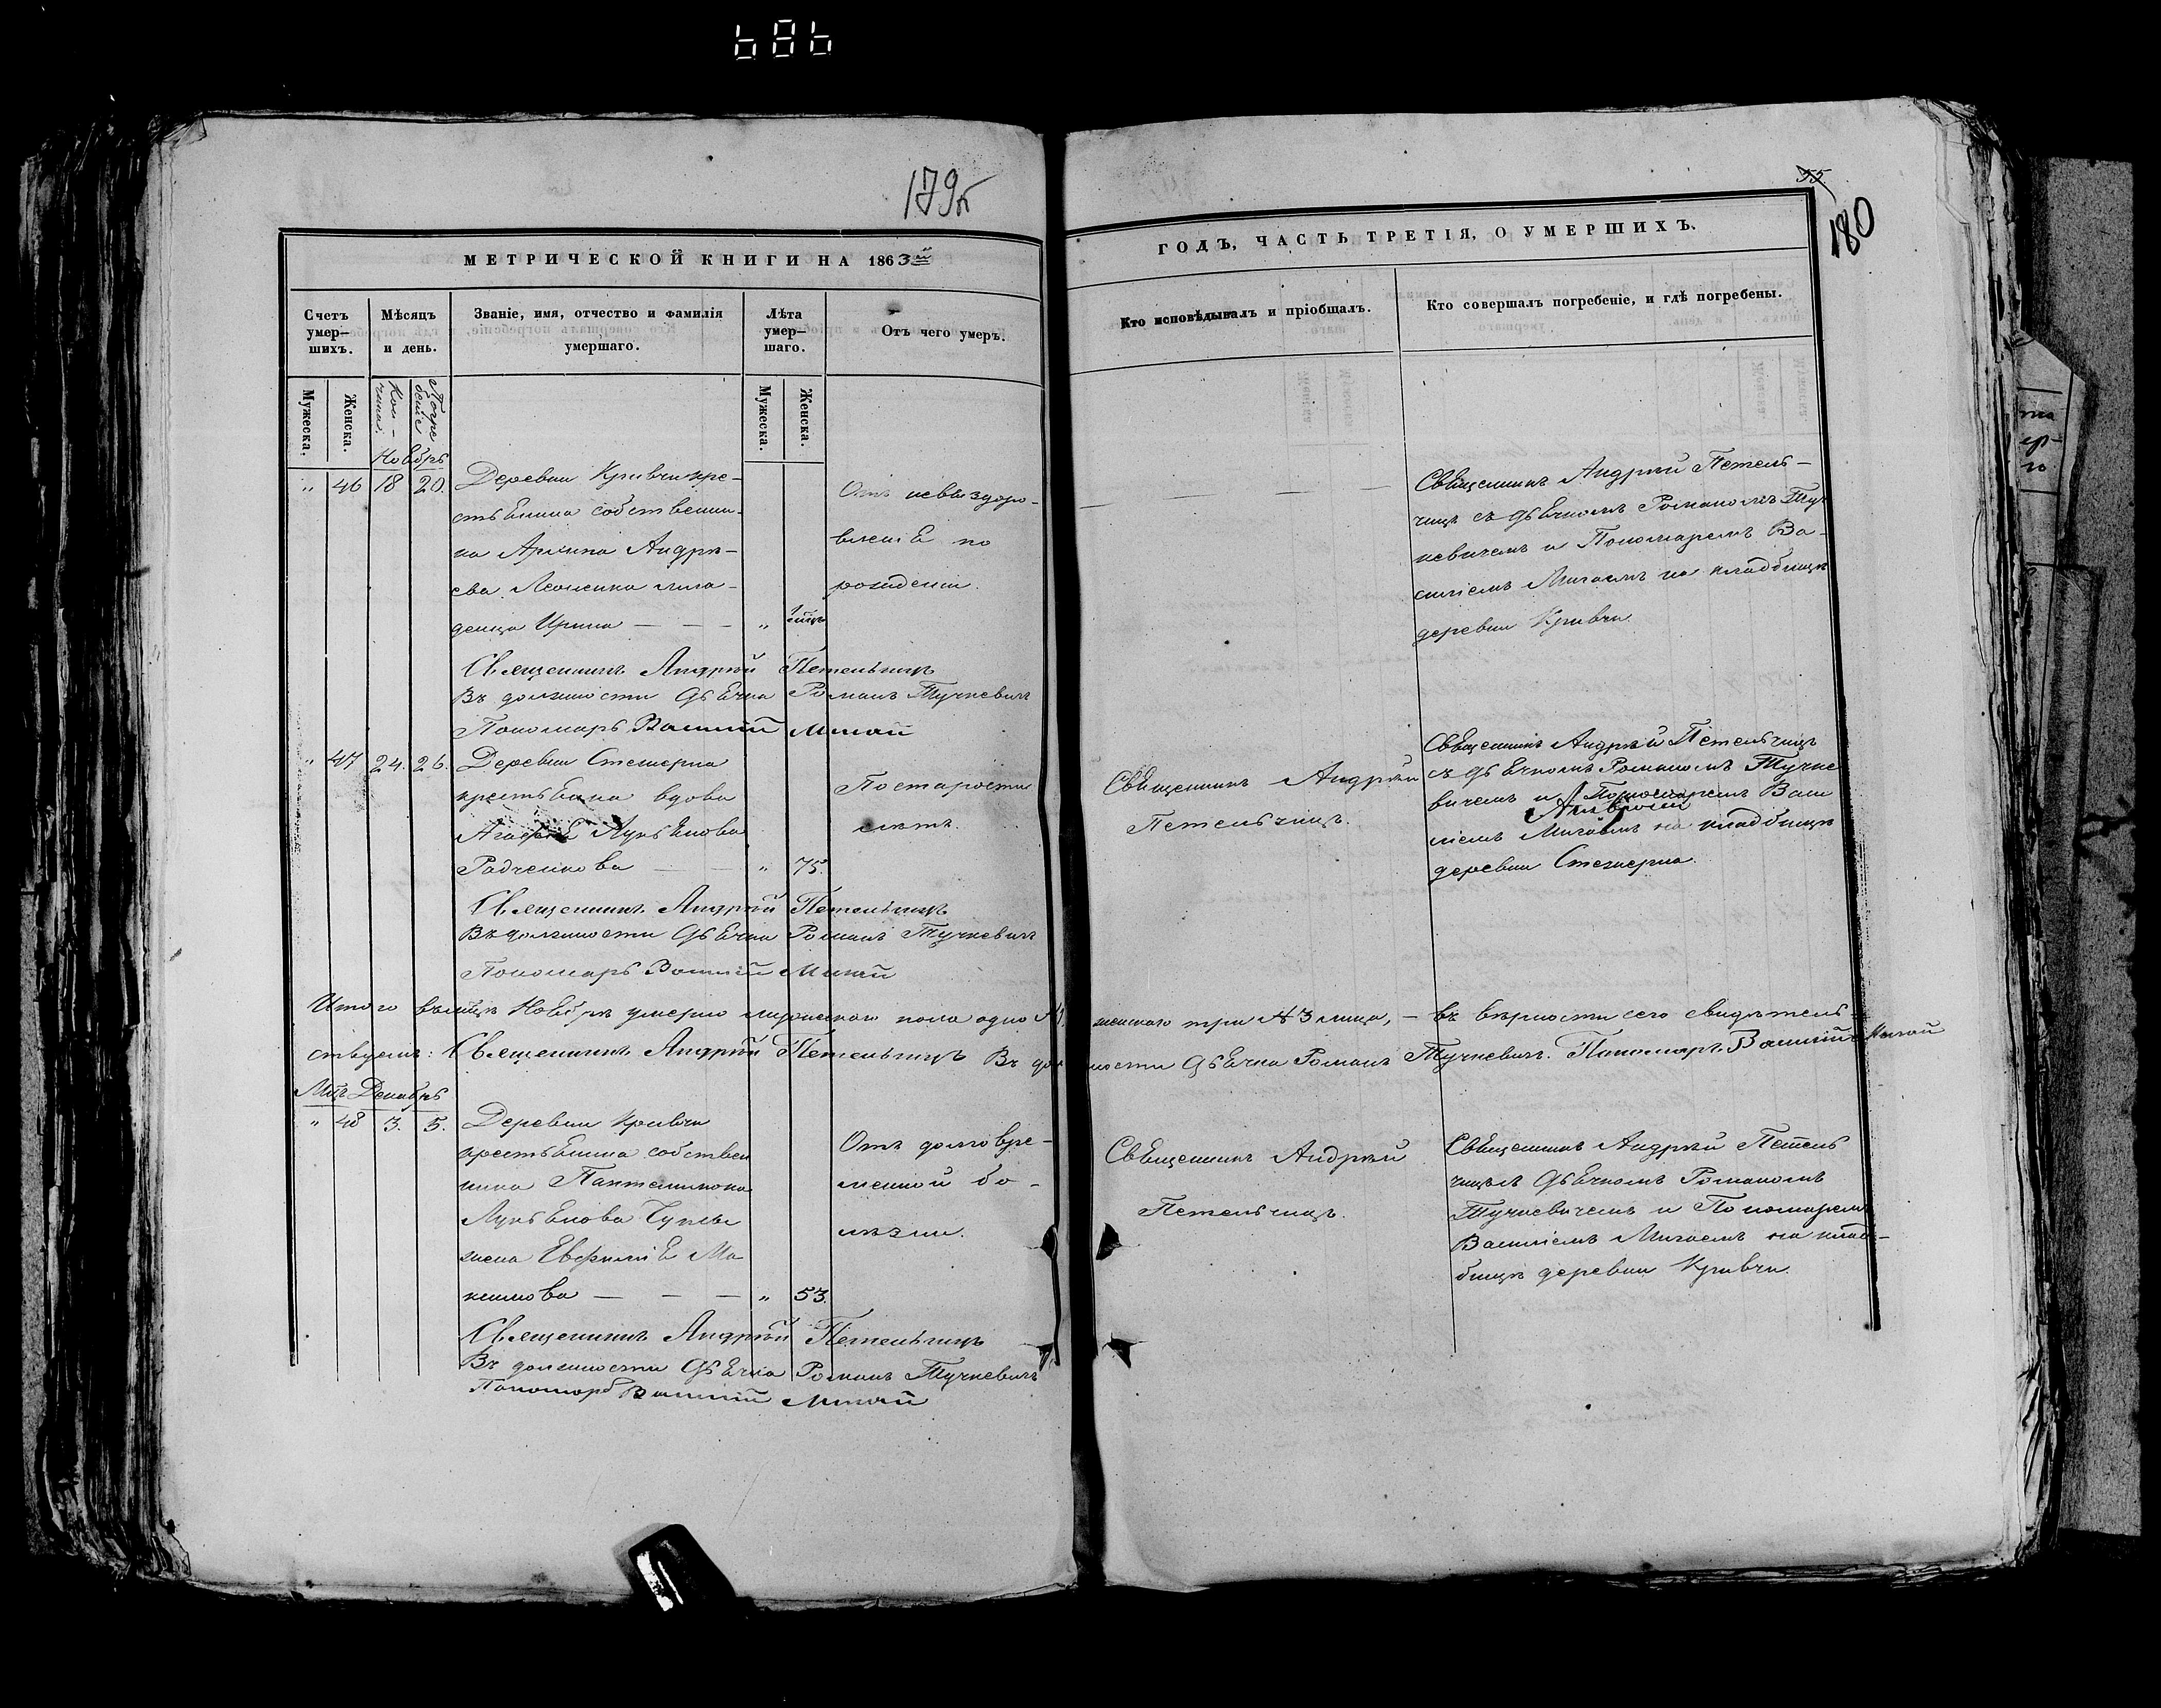 686
179б
95
180
МЕТРИЧЕСКОЙ КНИГИ НА 1863й
ГОДЪ, ЧАСТЬ ТРЕТІЯ, О УМЕРШИХЪ.
Счетъ умер–шихъ.
Мѣсяцъ и день.
Званіе, имя, отчество и фамилія умершаго.
Лѣта умер–шаго.
Отъ чего умеръ.
Кто исповѣдывалъ и пріобщалъ.
Кто совершалъ погребеніе, и гдѣ погребены.
Мужеска.
Женска.
Кон–чины.
Погре беніе
Мужеска.
Женска.
Ноябрь
„ 46 18 20. Деревни Кривчи кре–
стьянина собственни–
ка Андре–
ева Леоненка мла–
денца Ирина — — — „ 1 мцъ
Отъ невыздоро–
вленія по
рожденіи.
— — — —
Священникъ Андрей Петель–
чицъ съ дьячкомъ Романомъ Туч
кевичемъ и Пономаремъ Ва–
силіемъ Мигаемъ на кладбищѣ
деревни Кривчи.
Священникъ Андрей Петельчицъ
Въ должности дьячка Романъ Тучкевичъ
Пономарь Василій Мигай
„ 47 24. 26. Деревни Стежерна
крестьянка вдова
Агафія Лукьянова
Радченкова — — „ 75.
По старости
лѣтъ.
Священникъ Андрей
Петельчицъ.
Священникъ Андрей Петельчицъ
съ дьячкомъ Романомъ Тучке
вичемъ и Пономаремъ Васи
ліемъ Мигаемъ на кладбищѣ
деревни Стежерна.
Священникъ Андрей Петельчицъ
Въ должности дьячка Романъ Тучкевичъ
Пономарь Василій Мигай
Итого въ мцѣ Ноябрѣ умерло мужескаго пола одно №1, женскаго три №3 лица, — въ вѣрности сего свидѣтель–
ствуемъ: Священникъ Андрей Петельчицъ Въ должности дьячка Романъ Тучкевичъ. Пономарь Василій Мигай
Мцъ Декабрь
„ 48 3. 5. Деревни Кривчи
крестьянина собствен
ника Пантелимона
Лукьянова
жена Евфимія Ма
кимова — — — „ 53.
Отъ долговре–
менной бо–
лѣзни.
Священникъ Андрей
Петельчицъ.
Священникъ Андрей Петель
чицъ съ дьячкомъ Романомъ
Тучкевичемъ и Пономаремъ
Василіемъ Мигаемъ на клад–
бищѣ деревни Кривчи.
Священникъ Андрей Петельчицъ
Въ должности дьячка Романъ Тучкевичъ
Пономарь Василій Мигай